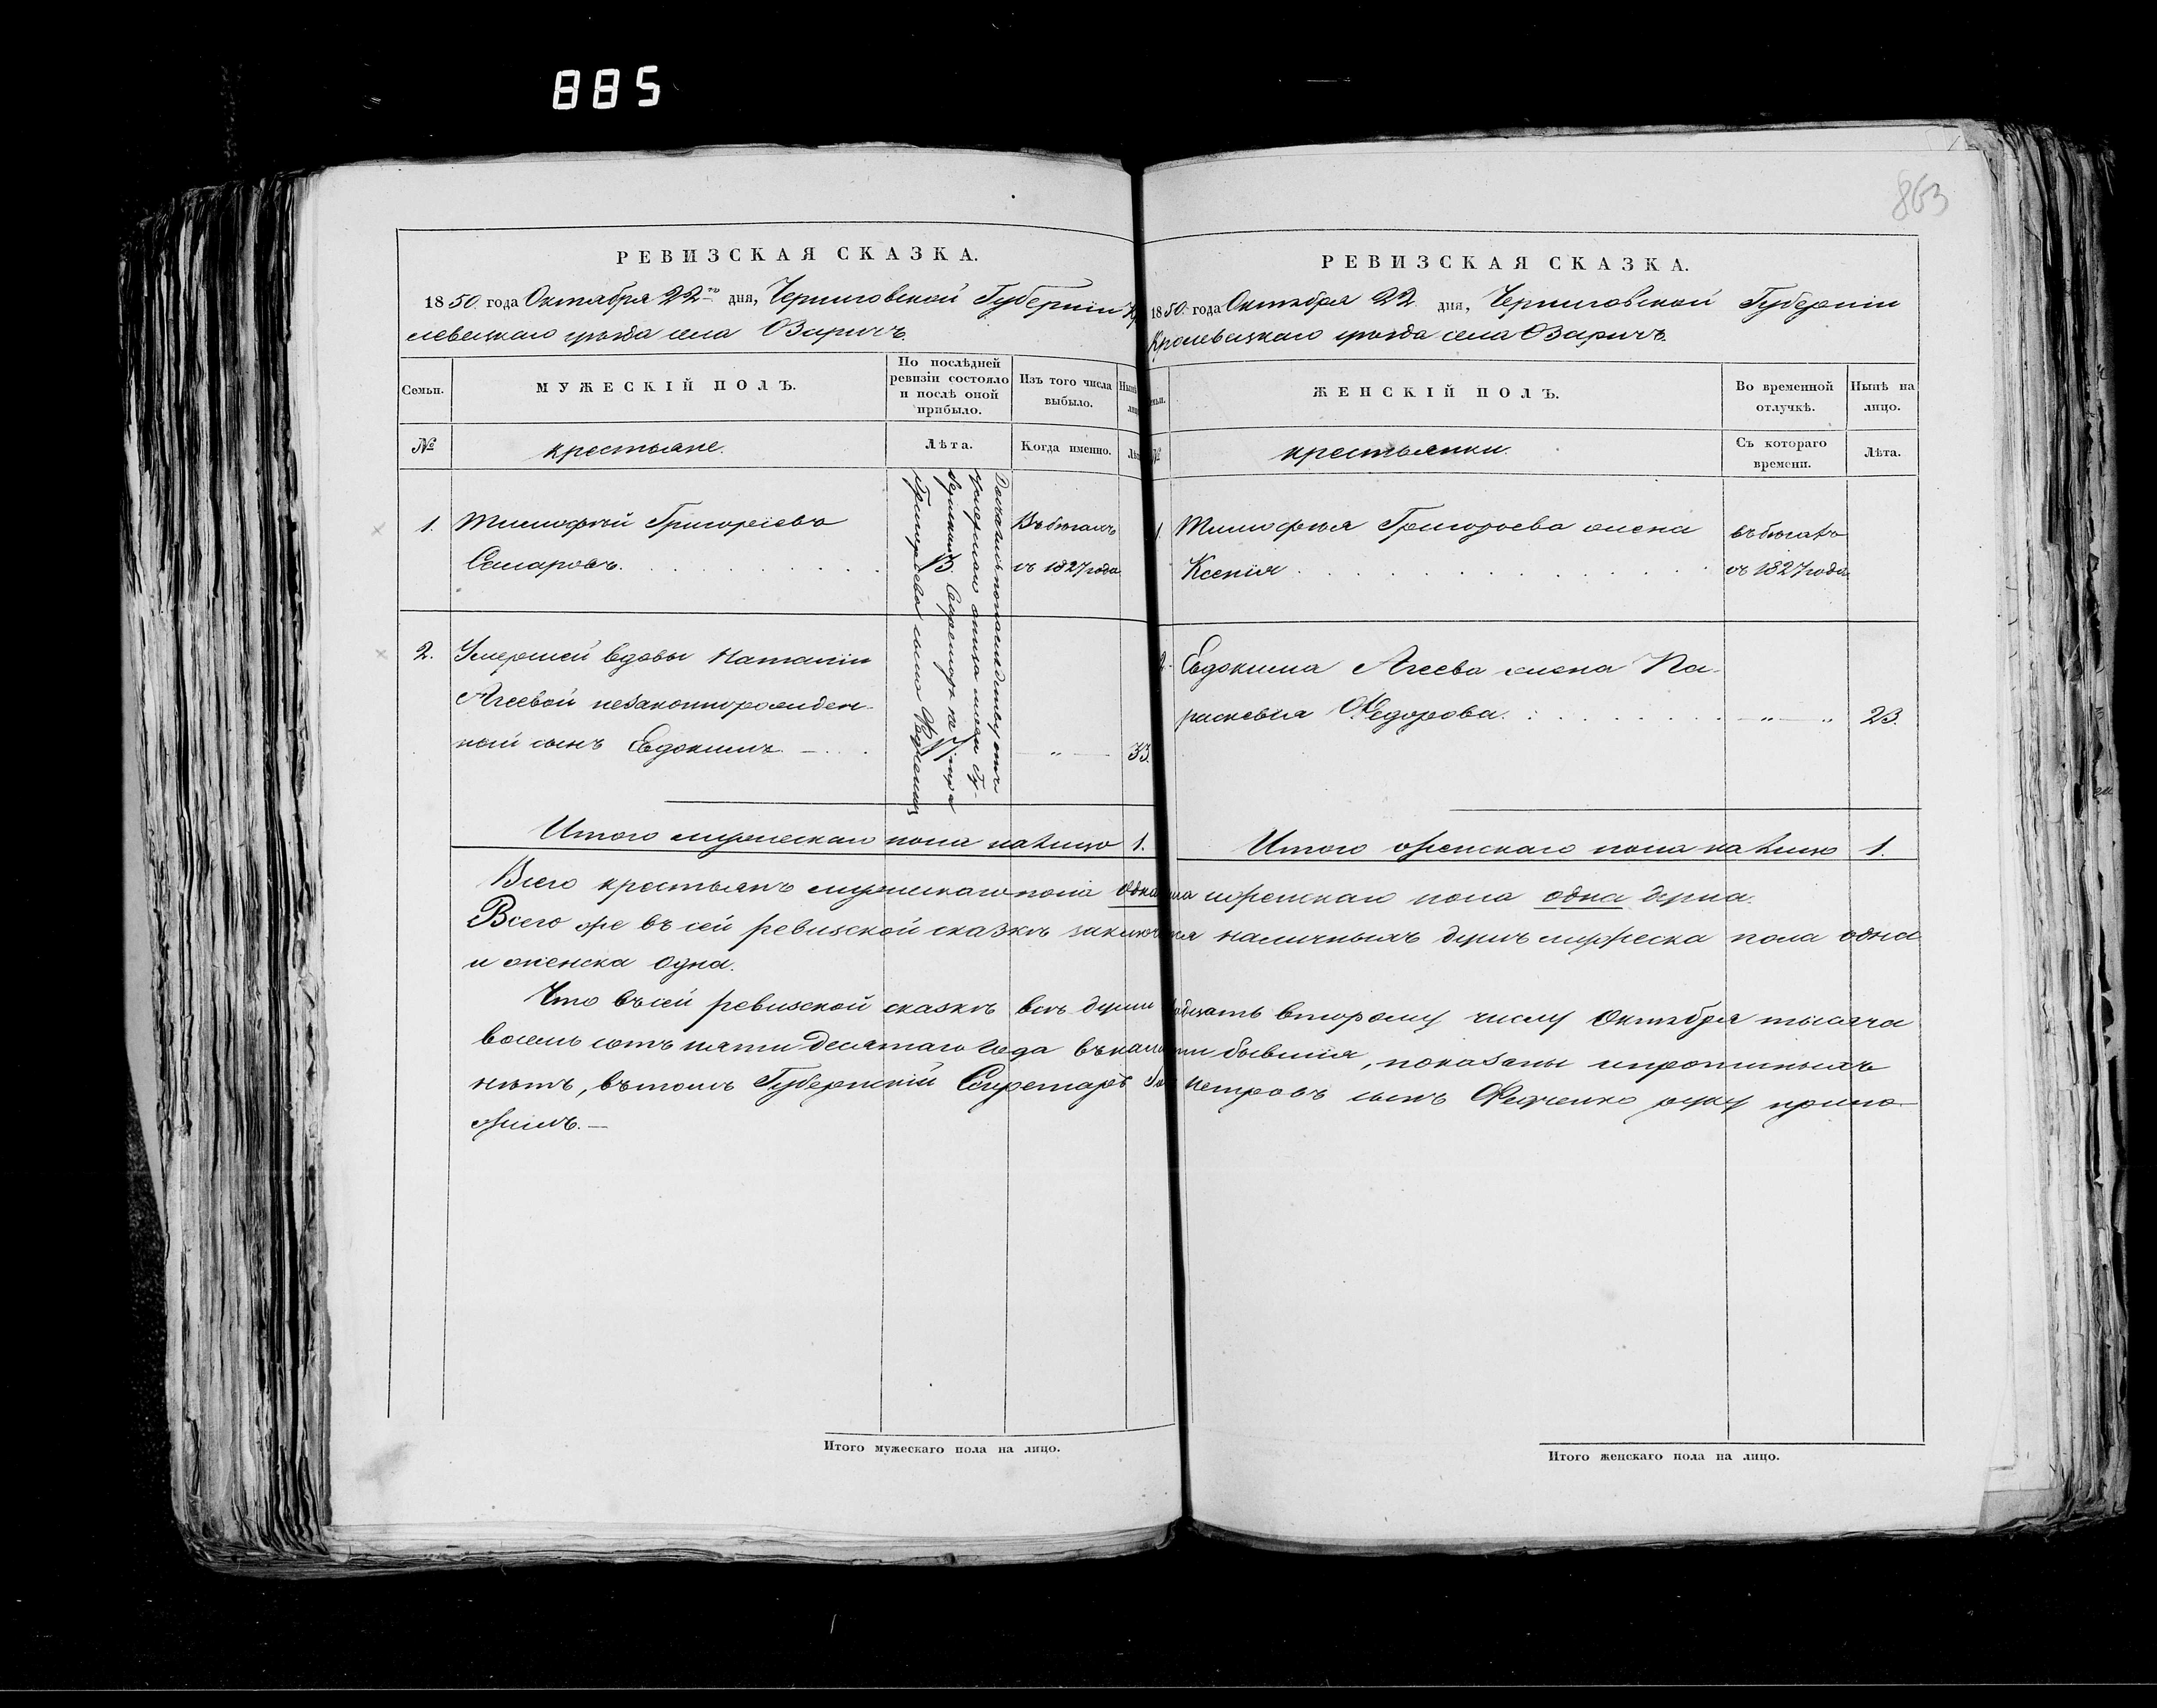 885
863
РЕВИЗСКАЯ СКАЗКА.
1850 года Октября 22го дня, Черниговской Губерніи Кр
левецкаго уѣзда села Озаричъ.
Семьи.
МУЖЕСКІЙ ПОЛЪ.
По послѣдней
ревизіи состояло
и послѣ оной
прибыло.
Изъ того числа
выбыло.
№
крестьяне.
Лѣта.
Когда именно.
1. Тимофѣй Григорьевъ Въ бѣгахъ
съ 1827 года
2. Умершей вдовы Наталіи
Агеевой незаконнорожден-
ный сынъ Евдокимъ 17 „ 33.
Итого мужескаго пола на лицо 1.
РЕВИЗСКАЯ СКАЗКА.
1850 года Октября 22 дня, Черниговской Губерніи
Кролевецкаго уѣзда села Озаричъ.
ЖЕНСКІЙ ПОЛЪ.
Во временной
отлучкѣ.
Нынѣ на
лицо.
№
крестьянки.
Съ котораго
времени.
Лѣта.
1. Тимофѣя Григорьева жена въ бѣгахъ
Ксенія съ 1827 года
2. Евдокима Агеева жена Па-
раскевія Федорова „ „ 23.
Итого женскаго пола на лицо 1.
Всего крестьянъ мужескаго пола одна женскаго пола одна душа.
Всего же въ сей ревизской сказкѣ наличныхъ душъ мужеска пола одна
и женска одна.
Что въ сей ревизской сказкѣ всѣ души второму числу Октября тысяча
восемь сотъ пяти десятаго года бывшія, показаны и прописныхъ
нѣтъ, въ томъ Губернскій Секретарь Петровъ сынъ Федченко руку прило-
жилъ.—
Итого мужескаго пола на лицо.
Итого женскаго пола на лицо.